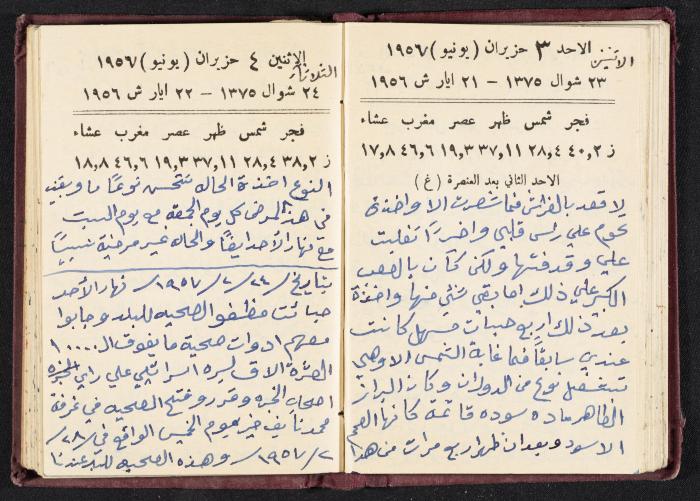 الاحد ٣ حزيران (يونيو) ١٩٥٦
الاثنين
٢٣ شوال ١٣٧٥ – ٢١ ايار ش ١٩٥٦
فجر شمس ظهر عصر مغرب عشاء
ز ٤٠,٢ ٢٨,٤ ٣٧,١١ ١٩,٣ ٤٦,٦ ١٧,٨
الاحد الثاني بعد العنصرة (غ)
لا قعد بالفراش فما شعرت الا واخذة
تحوم علي راسي قلبي واخيرًا تغلبت
علي وقذفتها ولكن كان بالصعب
الكبير علي ذلك اما بقي شئي منها واخذة
بعد ذلك اربع حبات مسهل كانت
عندي سابقًا فما غابة الشمس الا وهي
تشتغل نوع من الدوران وكان البراز
الظاهر ماده سوده قاتمة كانها الفحم
الاسود وبعد ان ظهر اربع مرات من هذا
الاثنين ٤ حزيران (يونيو) ١٩٥٦
الثلاثاء
٢٤ شوال ١٣٧٥ – ٢٢ ايار ش ١٩٥٦
فجر شمس ظهر عصر مغرب عشاء
ز ٣٨,٢ ٢٨,٤ ٣٧,١١ ١٩,٣ ٤٦,٦ ١٨,٨
النوع اخذة الحاله تتحسن نوعًا ما وبقيت
في هذا المرض كل يوم الجمعة مع يوم السبت
مع نهار الأحد ايضًا والحاله غير مرضية نسبيًا
بتاريخ ٢٤/٢/١٩٥٧ نهار الأحد
جائت موظفو الصحيه للبلد وجابوا
معهم ادوات صحية ما يفوق ال ١٠٠٠٠
العشرة الاف ليره اسرائيلي علي راي الخبره
اصحاب الخبره وقرر وفتح الصحيه في غرفة
محمد نايف خير يوم الخميس الواقع في ٢٨/
٢/١٩٥٧ وهذه الصحيه للبلد عندنا